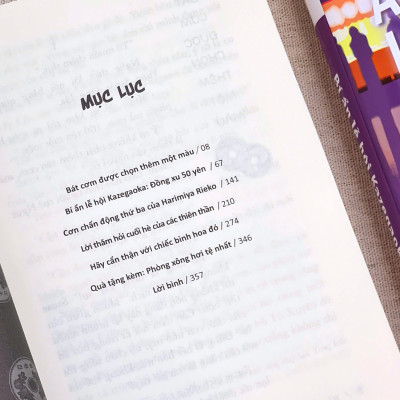 MỤC LỤC
Bát cơm được chọn thêm một màu / 08
Bí ẩn lễ hội Kazegaoka: Đồng xu 50 yên / 67
Cơn chấn động thứ ba của Harimiya Rieko / 141
Lời thăm hỏi cuối hè của các thiên thần / 210
Hãy cẩn thận với chiếc bình hoa đó / 274
Quà tặng kèm: Phòng xông hơi tệ nhất / 346
Lời bình / 357
Bí ẩn lễ hội Kazegaoka